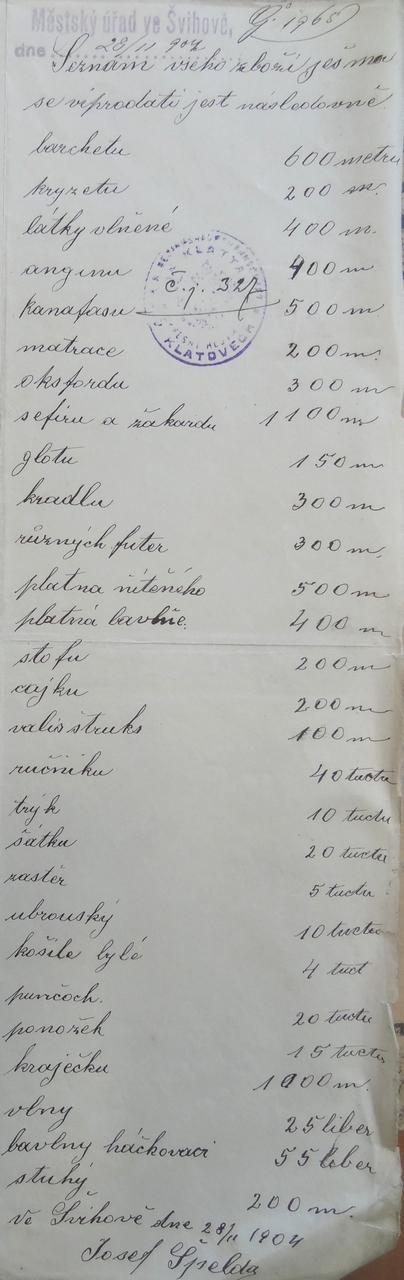 Městský úřad ve Švihově,
Čj 1965
dne 28/11 904
Seznam všeho zboží jež má
se víprodati jest následovně
barchetu 600 metru
kryzetu 200 m.
látky vlněné 400 m.
anginu 400 m
KLATTAU
Č. j. 327
kanafasu 500 m
KLATOVECH
matrace 200 m.
oksfordu 300 m
sefiru a žakardu 1100 m
glotu 150 m
kradlu 300 m
různých futer 300 m.
platna nitěného 500 m
platná bavlňe. 400 m
stofu 200 m
cajku 200 m
valisštruks 100 m
ručniku 40 tuctu
trýk 10 tuctu
šátku 20 tuctu
zastěr 5 tuctu
ubrouský 10 tuctu
košile bylé 4 tuct
punčoch. 20 tuctu
ponožek 15 tuctu
kraječku 1000 m.
vlny 25 liber
bavlny háčkovaci 55 liber
stuhý 200 m.
ve Švihově dne 28/11 1904
Josef Špelda